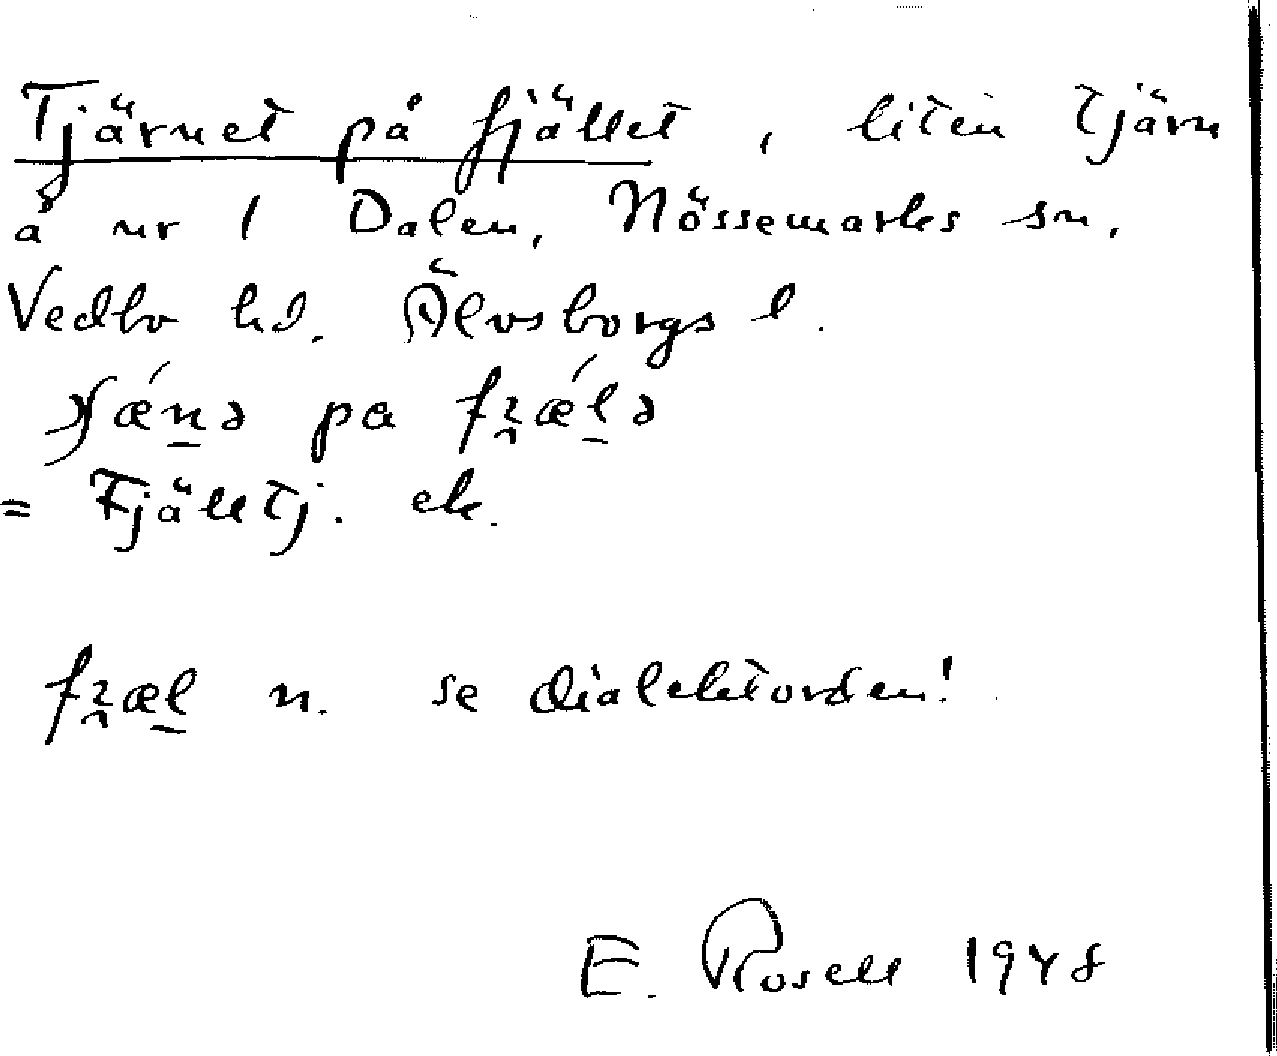 Tjärnet på fjället, liten tjärn
å nr 1 Dalen, Nössemarks sn,
Vedbo hd. Älvsborgs l.
pa
= Fjälltj. ek.
n. se dialektorden!
E. Rosell 1948